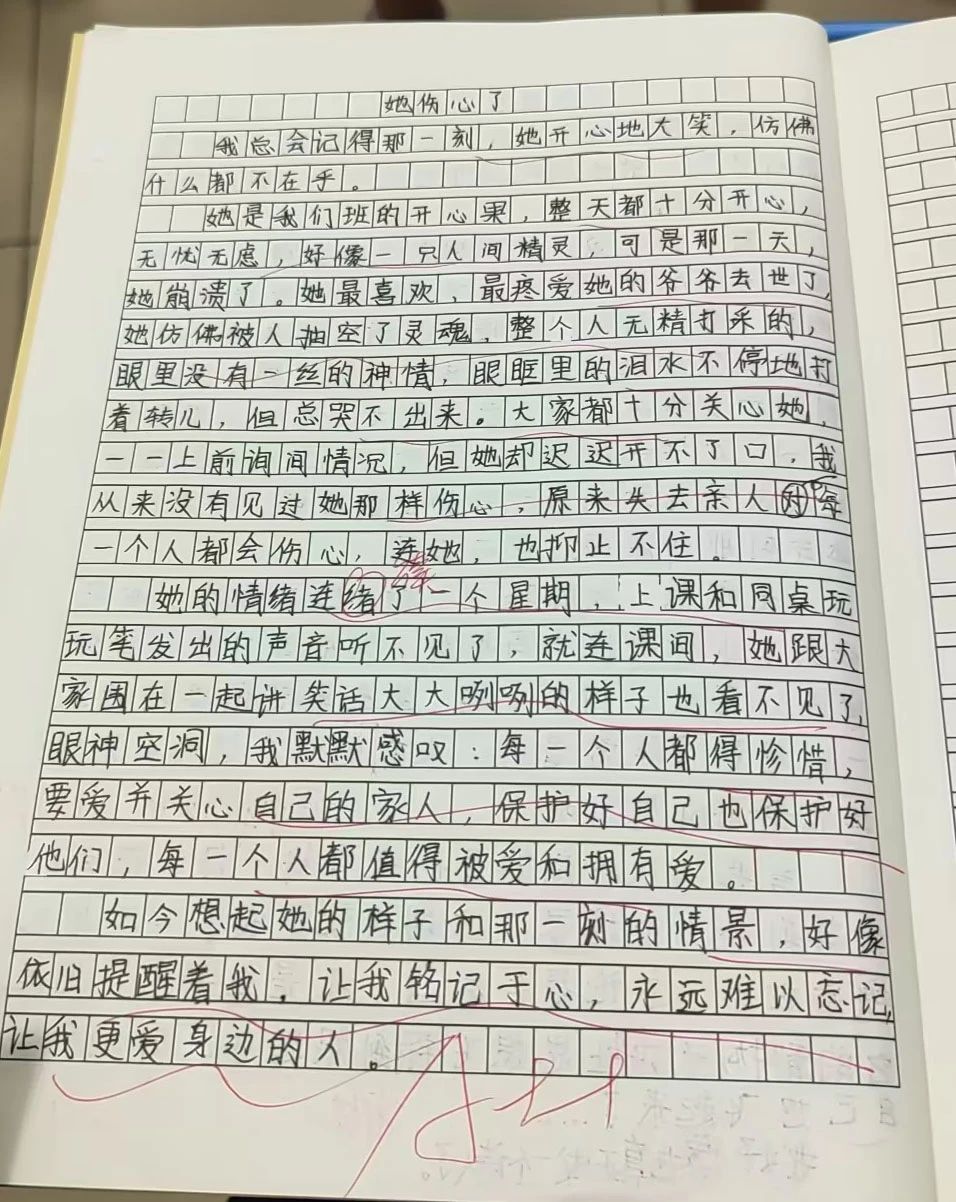 她伤心了
我总会记得那一刻，她开心地大笑，仿佛
什么都不在乎。
她是我们班的开心果，整天都十分开心，
无忧无虑，好像一只人间精灵，可是那一天，
她崩溃了。她最喜欢、最疼爱她的爷爷去世了，
她仿佛被人抽空了灵魂，整个人无精打采的，
眼里没有一丝的神情，眼眶里的泪水不停地打
着转儿，但总哭不出来。大家都十分关心她，
一一上前询问情况，但她却迟迟开不了口，我
从来没有见过她那样伤心，原来失去亲人对每
一个人都会伤心，连她，也抑止不住。
她的情绪连绪了一个星期，上课和同桌玩
玩笔发出的声音听不见了，就连课间，她跟大
家围在一起讲笑话大大咧咧的样子也看不见了，
眼神空洞，我默默感叹：每一个人都得珍惜，
要爱并关心自己的家人，保护好自己也保护好
他们，每一个人都值得被爱和拥有爱。
如今想起她的样子和那一刻的情景，好像
依旧提醒着我，让我铭记于心，永远难以忘记，
让我更爱身边的人。
A++